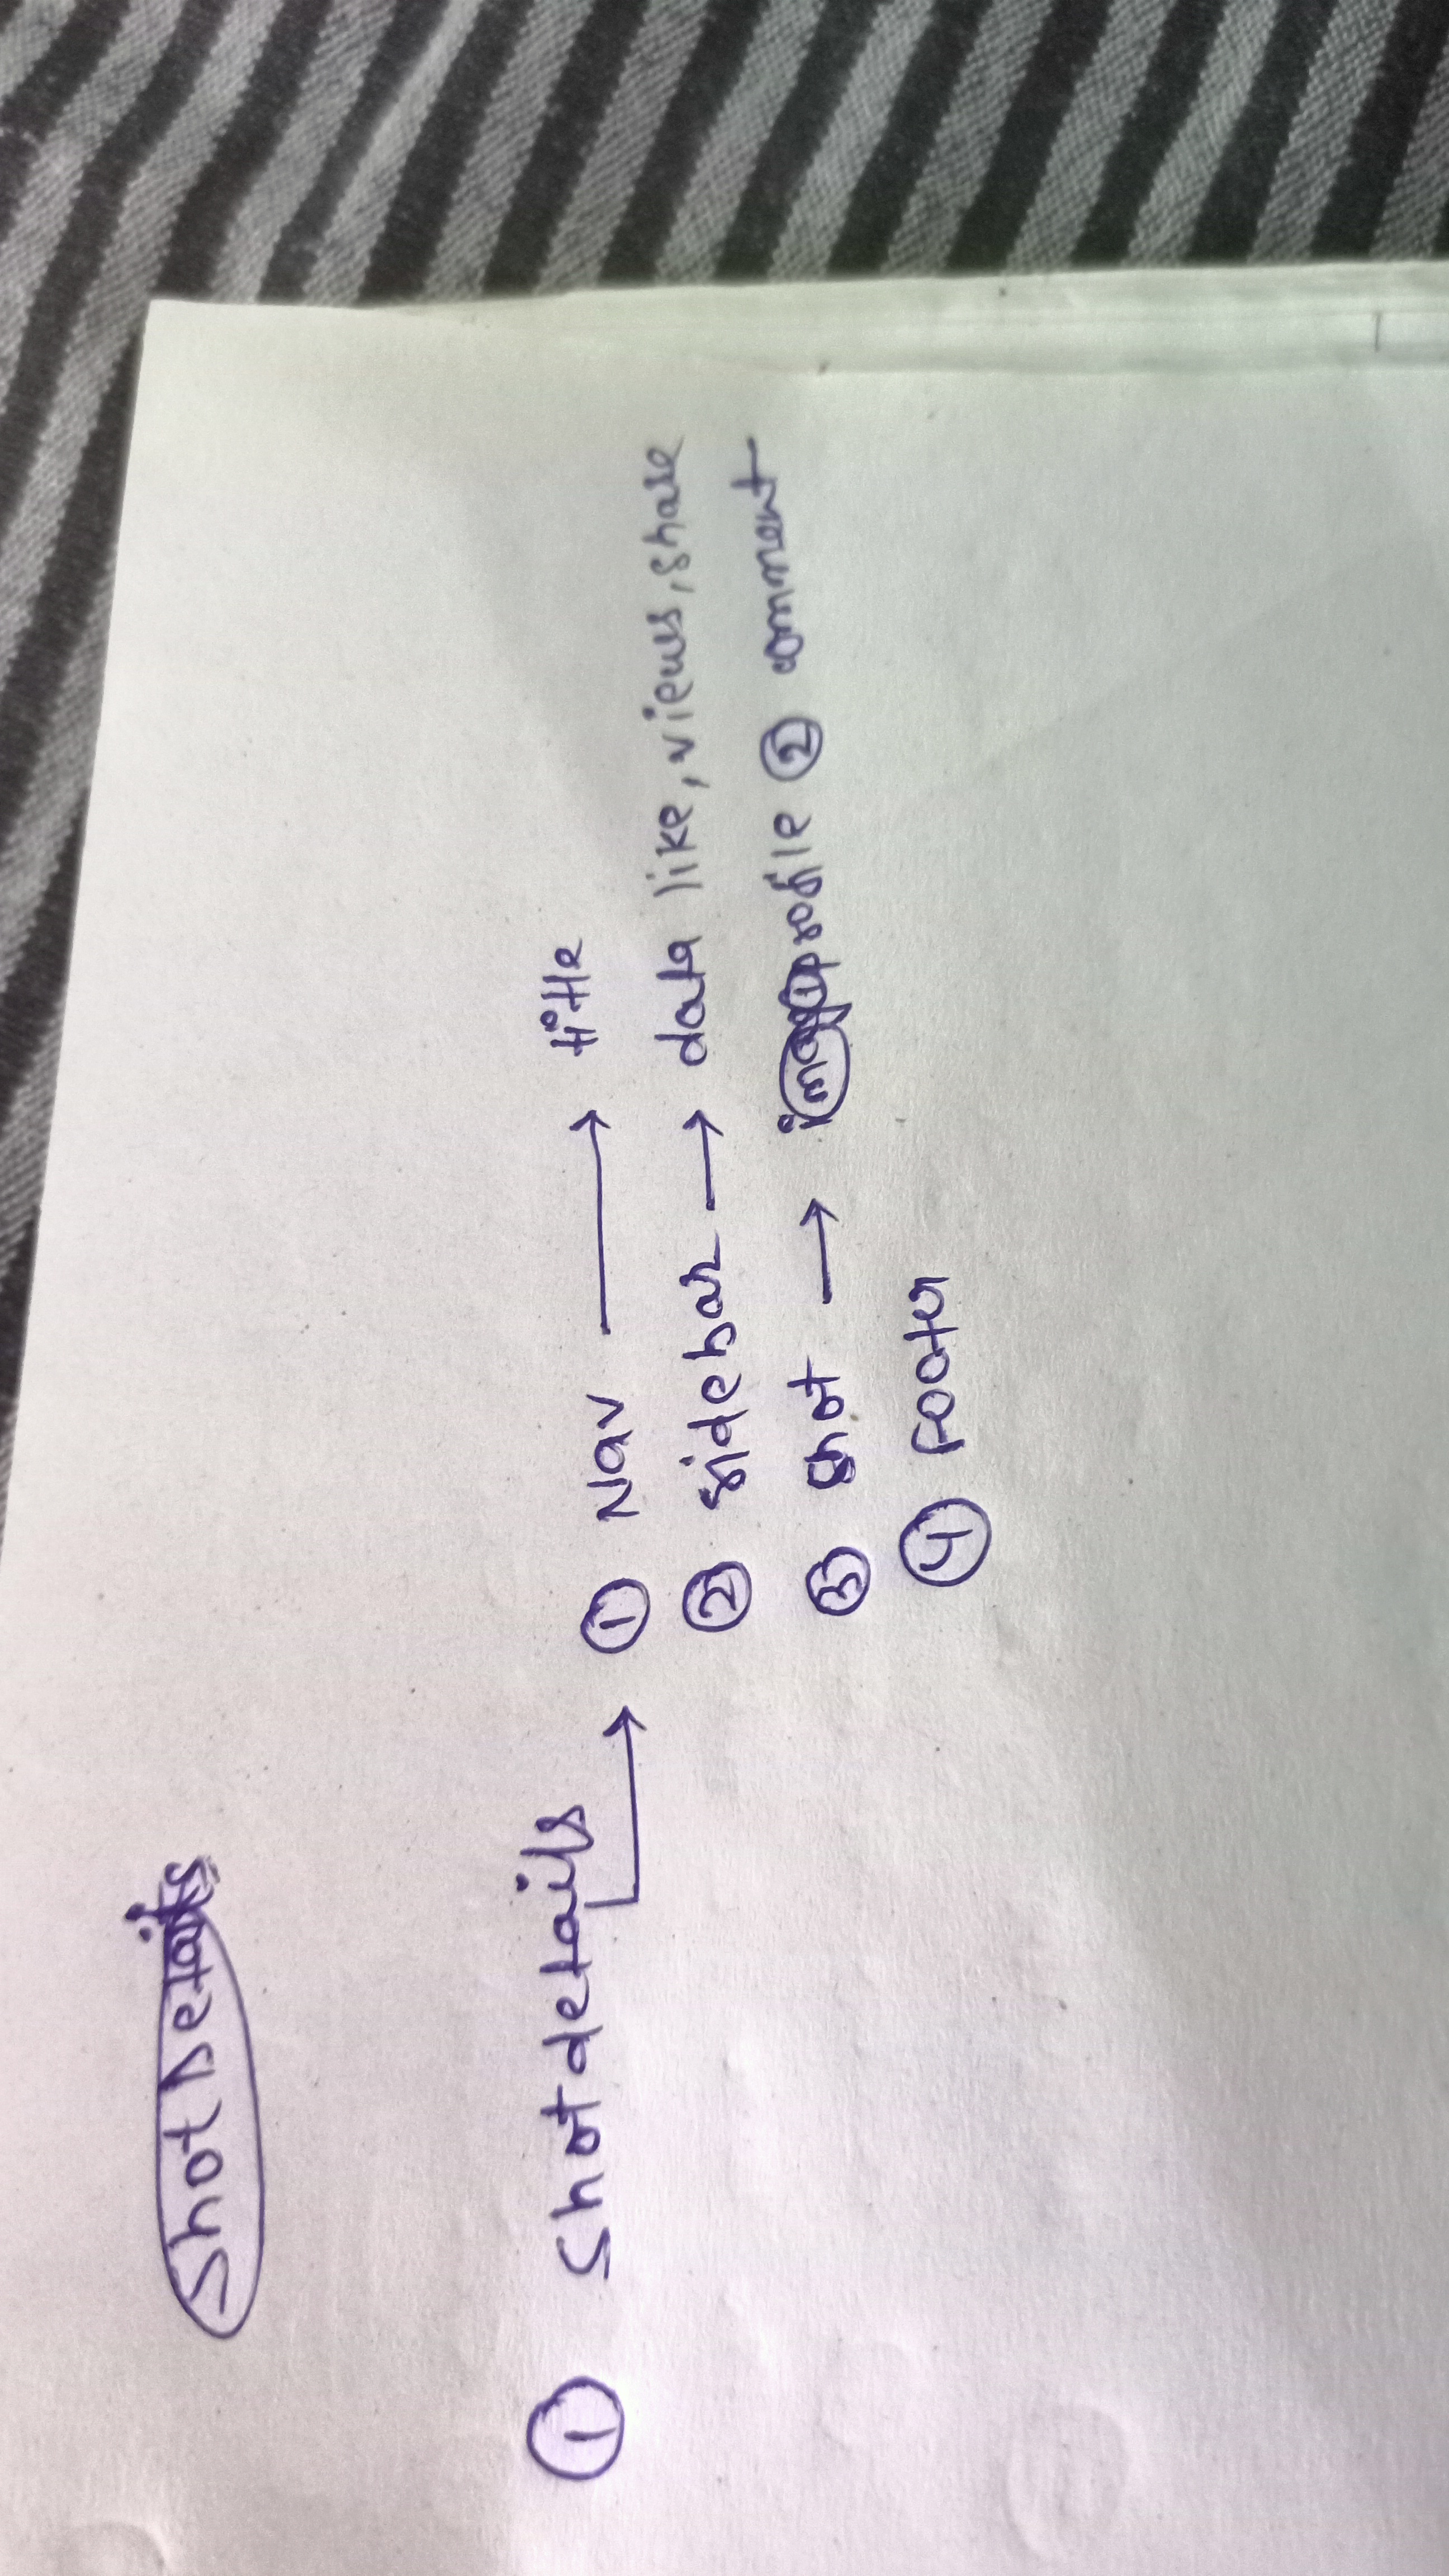 Shot Details
① Shot details
① Nav → title
② sidebar → data like, views, share
③ shot → ① profile ② comment
④ Footer